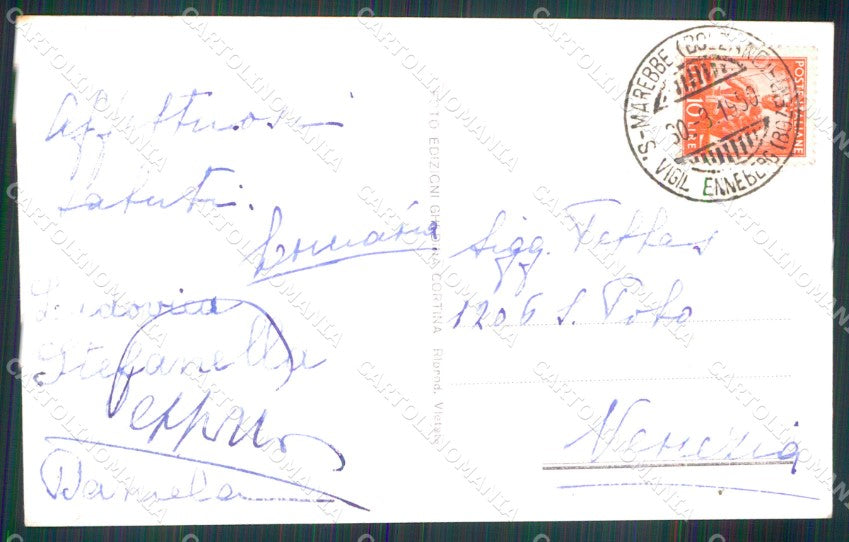 Affettuosi
saluti.
Ludovica
Stefanella
Daniela
FOTO EDIZIONI GHEDINA CORTINA Riprod. Vietata
Sigg.
1206 S. Polo
Venezia
S. MAREBBE (BOLZANO)
30.8.1950
S. VIGIL ENNEBERG (BOZEN)
POSTE ITALIANE
10 LIRE
CARTOLINOMANIA